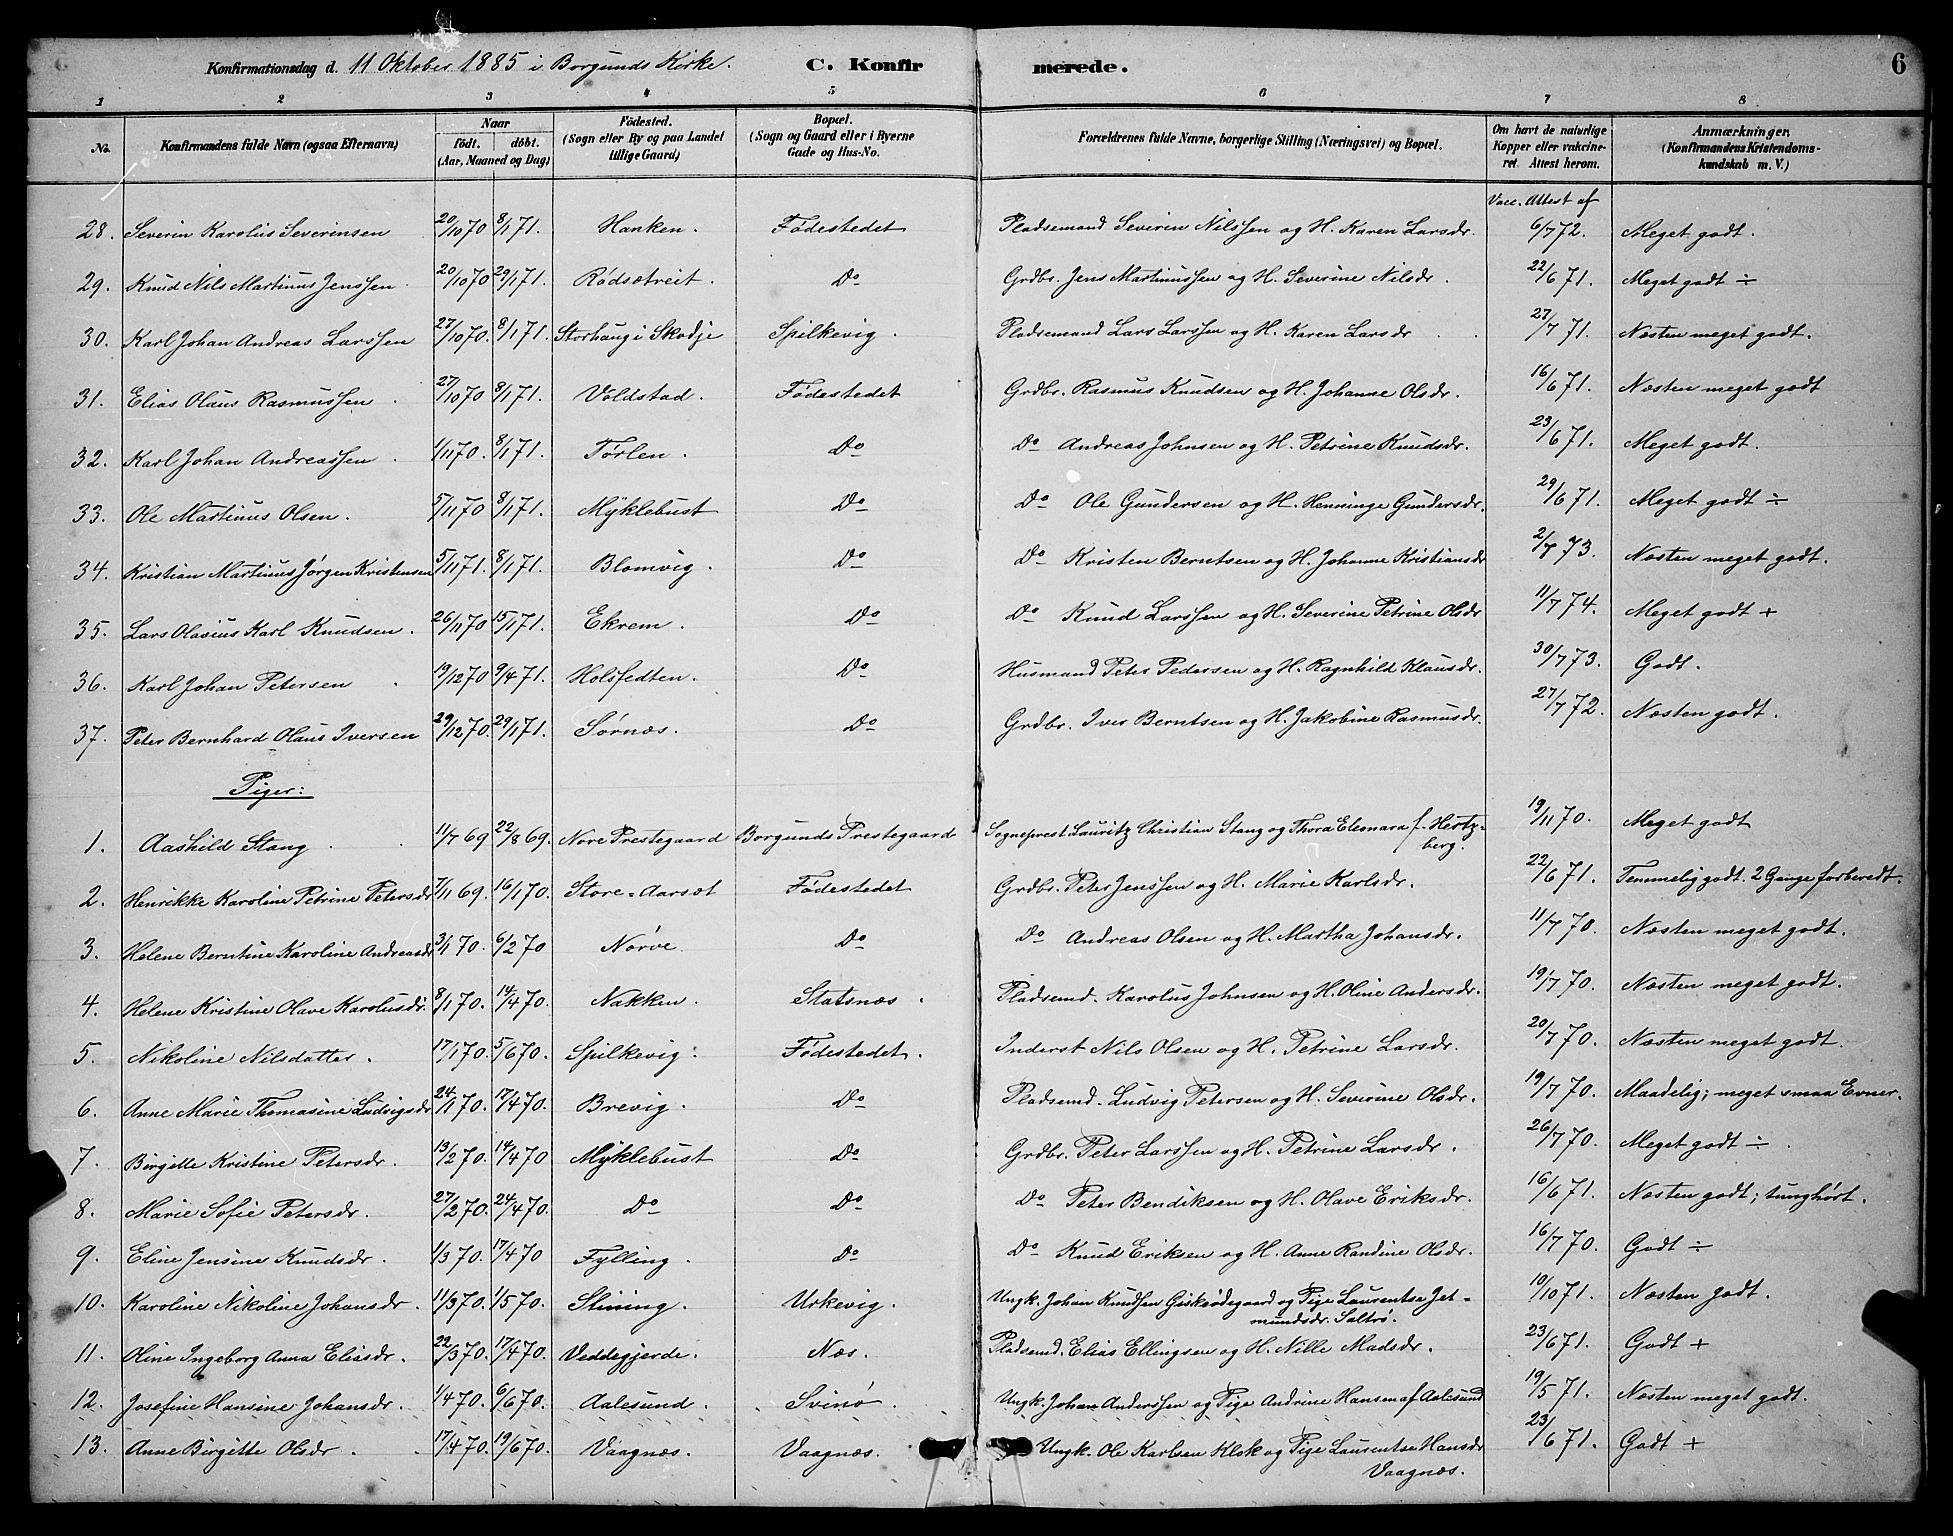 Konfirmationsdag d. 11 Oktober 1885 i Borgunds Kirke. C. Konfirmerede. 6
1 2 3 4 5 6 7 8
No. Konfirmandens fulde Navn (ogsaa Efternavn) Naar födt. döbt. (Aar, Maaned og Dag) Födested. (Sogn eller By og paa Landet tillige Gaard) Bopæl. (Sogn og Gaard eller i Byerne Gade og Hus-No. Forældrenes fulde Navne, borgerlige Stilling (Næringsvei) og Bopæl. Om havt de naturlige Kopper eller vakcineret. Attest herom. Anmærkninger. (Konfirmandens Kristendomskundskab m. V.)
Vacc. Attest af
28. Severin Karolius Severinsen 20/10 70 8/1 71. Hanken. Fødestedet Pladsemand Severin Nilssen og H. Karen Larsdr. 6/7 72. Meget godt.
29. Knud Nils Martinus Jenssen 20/10 70 29/1 71. Rødsætreit. Do Grdbr. Jens Martinussen og H. Severine Nilsdr. 22/6 71. Meget godt ÷
30. Karl Johan Andreas Larssen 27/10 70. 8/1 71. Storhaug i Skodje Spilkevig. Pladsemand Lars Larssen og H. Karen Larsdr 27/7 71. Næsten meget godt.
31. Elias Olaus Rasmussen 27/10 70 8/1 71. Voldstad. Fødestedet Grdbr. Rasmus Knudsen og H. Johanne Olsdr. 16/6 71. Næsten meget godt
32. Karl Johan Andreassen 1/11 70. 8/1 71. Tørlen. Do Do Andreas Johnsen og H. Petrine Knudsdr. 23/6 71. Meget godt.
33. Ole Martinus Olsen. 5/11 70 8/1 71. Myklebust Do Do Ole Gundersen og H. Henninge Gundersdr. 29/6 71. Meget godt ÷
34. Kristian Martinus Jørgen Kristensen 5/11 71. 8/1 71. Blomvig. Do Do Kristen Berntsen og H. Johanne Kristiansdr 2/7 73. Næsten meget godt.
35. Lars Olasius Karl Knudsen. 26/11 70 15/1 71. Ekrem. Do Do Knud Larssen og H. Severine Petrine Olsdr 11/7 74. Meget godt +
36. Karl Johan Petersen 19/12 70 9/4 71. Holsfedten. Do Husmand Peter Pedersen og H. Ragnhild Klausdr. 30/7 73. Godt.
37. Peter Bernhard Olaus Iversen 29/12 70. 29/1 71. Sørnæs. Do Grdbr. Iver Berntsen og H. Jakobine Rasmusdr. 27/7 72. Næsten godt.
Piger:
1. Aashild Stang 11/7 69 22/8 69. Nore Prestegaard Borgunds Prestegaard Sogneprest Lauritz Christian Stang og Thora Elenara f. Hertz-
berg. 19/11 70. Meget godt
2. Henrikke Karoline Petrine Petersdr 7/11 69. 16/1 70. Store-Aarsæt Fødestedet Grdbr. Peter Jenssen og H. Marie Karlsdr. 22/6 71. Temmelig godt. 2 Gange forberedt.
3. Helene Berntine Karoline Andreasdr 3/1 70. 6/2 70 Nørve. Do Do Andreas Olsen og H. Martha Johansdr. 11/7 70. Næsten meget godt.
4. Helene Kristine Olave Karolusdr. 8/1 70. 14/4 70. Nakken. Statsnæs. Pladsemd. Karolus Johnsen og H. Oline Andersdr. 19/7 70. Næsten meget godt.
5. Nikoline Nilsdatter. 17/1 70. 5/6 70. Spilkevig. Fødestedet. Inderst Nils Olsen og H. Petrine Larsdr. 20/7 70. Næsten meget godt.
6. Anne Marie Thomasine Ludvigsdr 24/1 70. 17/4 70. Brevig. Do Pladsemd. Ludvig Petersen og H. Severine Olsdr. 19/7 70. Maadelig; meget smaa Evner.
7. Birgitte Kristine Petersdr. 13/2 70. 14/4 70 Myklebust Do Grdbr. Peter Larssen og H. Petrine Larsdr. 26/7 70. Meget godt ÷
8. Marie Sofie Petersdr. 27/2 70. 24/4 70. Do Do Do Peter Bendiksen og H. Olave Eriksdr. 16/6 71. Næsten godt; tunghørt.
9. Eline Jensine Knudsdr. 1/3 70. 17/4 70 Fylling. Do Do Knud Eriksen og H. Anne Randine Olsdr. 16/7 70. Godt ÷
10. Karoline Nikoline Johansdr. 11/3 70. 1/5 70. Slining. Urkevig. Ungk. Johan Knudsen Giskeødegaard og Pige Laurentse Jet-
mundsdr. Saltrø. 10/10 71. Næsten godt.
11. Oline Ingeborg Anna Eliasdr. 22/3 70. 17/4 70. Veddegjerde. Næs. Pladsemd. Elias Ellingsen og H. Nille Madsdr. 23/6 71. Godt +
12. Josefine Hansine Johansdr. 1/4 70. 6/6 70. Aalesund. Svinø. Ungk. Johan Anderssen og Pige Andrine Hansen af Aalesund 19/5 71. Næsten meget godt.
13. Anne Birgitte Olsdr. 17/4 70. 19/6 70. Vaagnæs. Vaagnæs. Ungk. Ole Karlsen Klok og Pige Laurentse Hansdr
Vaagnæs. 23/6 71. Godt +